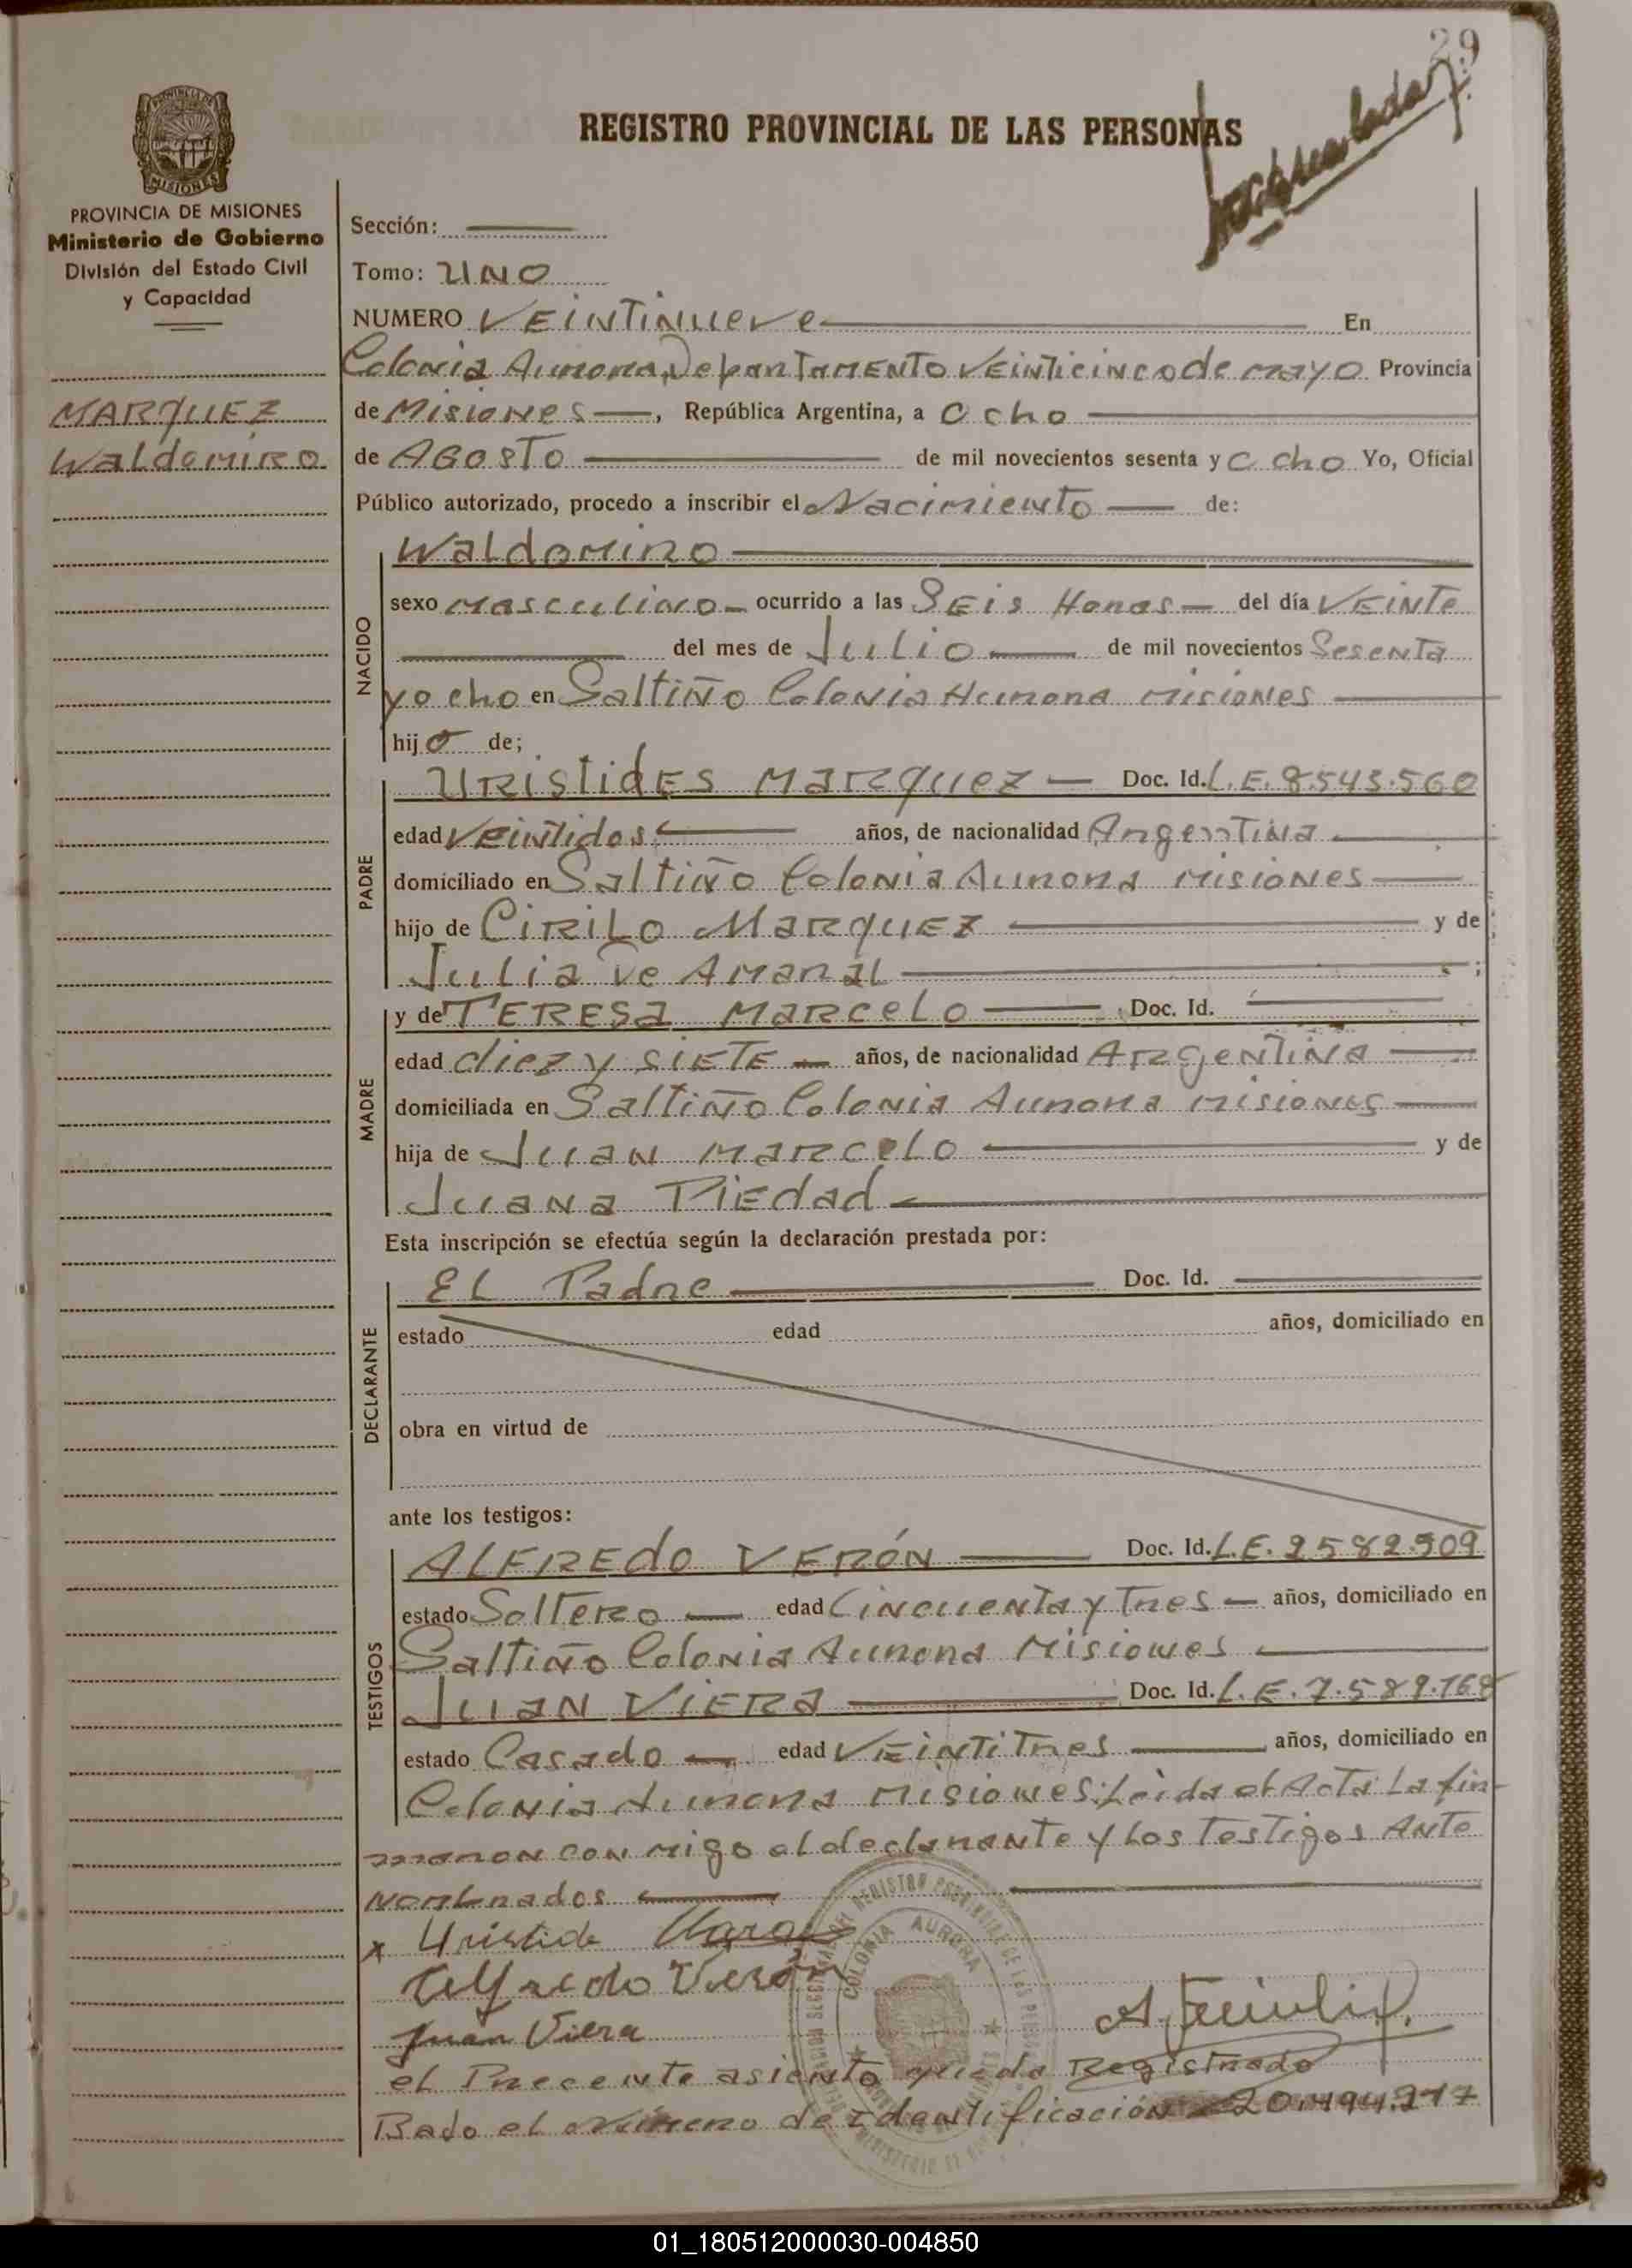 29
REGISTRO PROVINCIAL DE LAS PERSONAS
PROVINCIA DE MISIONES
MISIONES
PROVINCIA DE MISIONES
Ministerio de Gobierno
División del Estado Civil
y Capacidad
MARQUEZ
Waldomiro
Sección:
Tomo: UNO
NUMERO VEINTINUEVE En
Colonia Aurora, Departamento Veinticinco de mayo Provincia
de Misiones, República Argentina, a Ocho
de AGOSTO de mil novecientos sesenta y ocho Yo, Oficial
Público autorizado, procedo a inscribir el Nacimiento de:
NACIDO
Waldomiro
sexo masculino ocurrido a las Seis Horas del día VEINTE
del mes de Julio de mil novecientos Sesenta
y ocho en Saltiño Colonia Aurora misiones
hijo de;
PADRE
URISTIDES MARQUEZ Doc. Id. L.E. 8.543.560
edad Veintidos años, de nacionalidad Argentina
domiciliado en Saltiño Colonia Aurora misiones
hijo de CIRILO MARQUEZ y de
Julia De Amaral ;
MADRE
y de TERESA MARCELO Doc. Id.
edad diez y SIETE años, de nacionalidad ARgentina
domiciliada en Saltiño Colonia Aurora misiones
hija de JUAN MARCELO y de
Juana PiEdad
Esta inscripción se efectúa según la declaración prestada por:
DECLARANTE
EL Padre Doc. Id.
estado edad años, domiciliado en
obra en virtud de
ante los testigos:
TESTIGOS
ALFREDO VERÓN Doc. Id. L.E. 2582.909
estado Soltero edad Cincuenta y Tres años, domiciliado en
Saltiño Colonia Aurora Misiones
JUAN VIERA Doc. Id. L.E. 7.589.168
estado Casado edad VEINTITRES años, domiciliado en
Colonia Aurora misiones: Leida el Acta La fir-
maron con migo el declarante y Los Testigos Ante
Nombrados
x Uristide
Alfredo Verón
Juan Viera
COLONIA AURORA
el Precente asiento queda Registrado
Bajo el número de Identificación 20.494.217
01_180512000030-004850